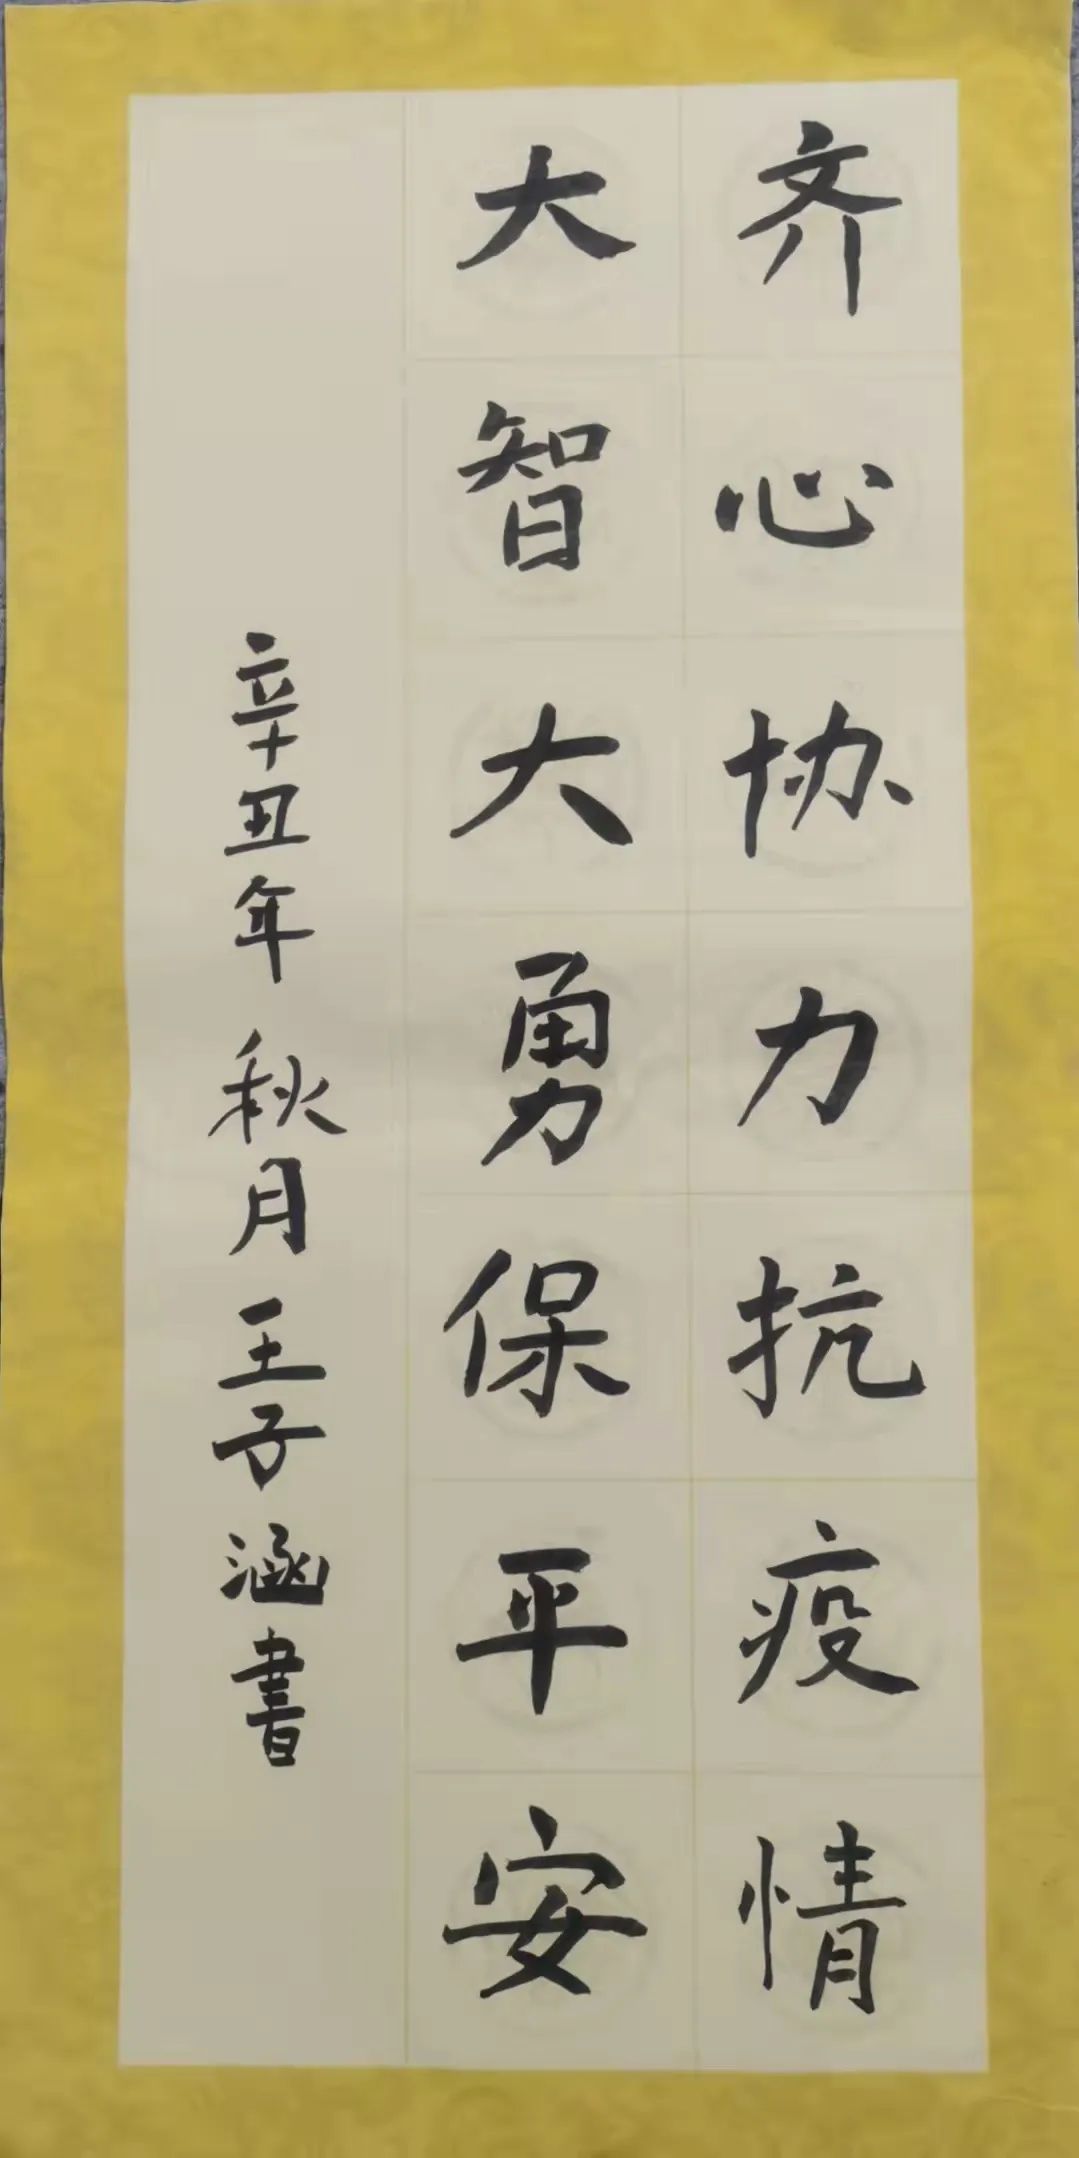 齐心协力抗疫情
大智大勇保平安
辛丑年秋月王子涵書